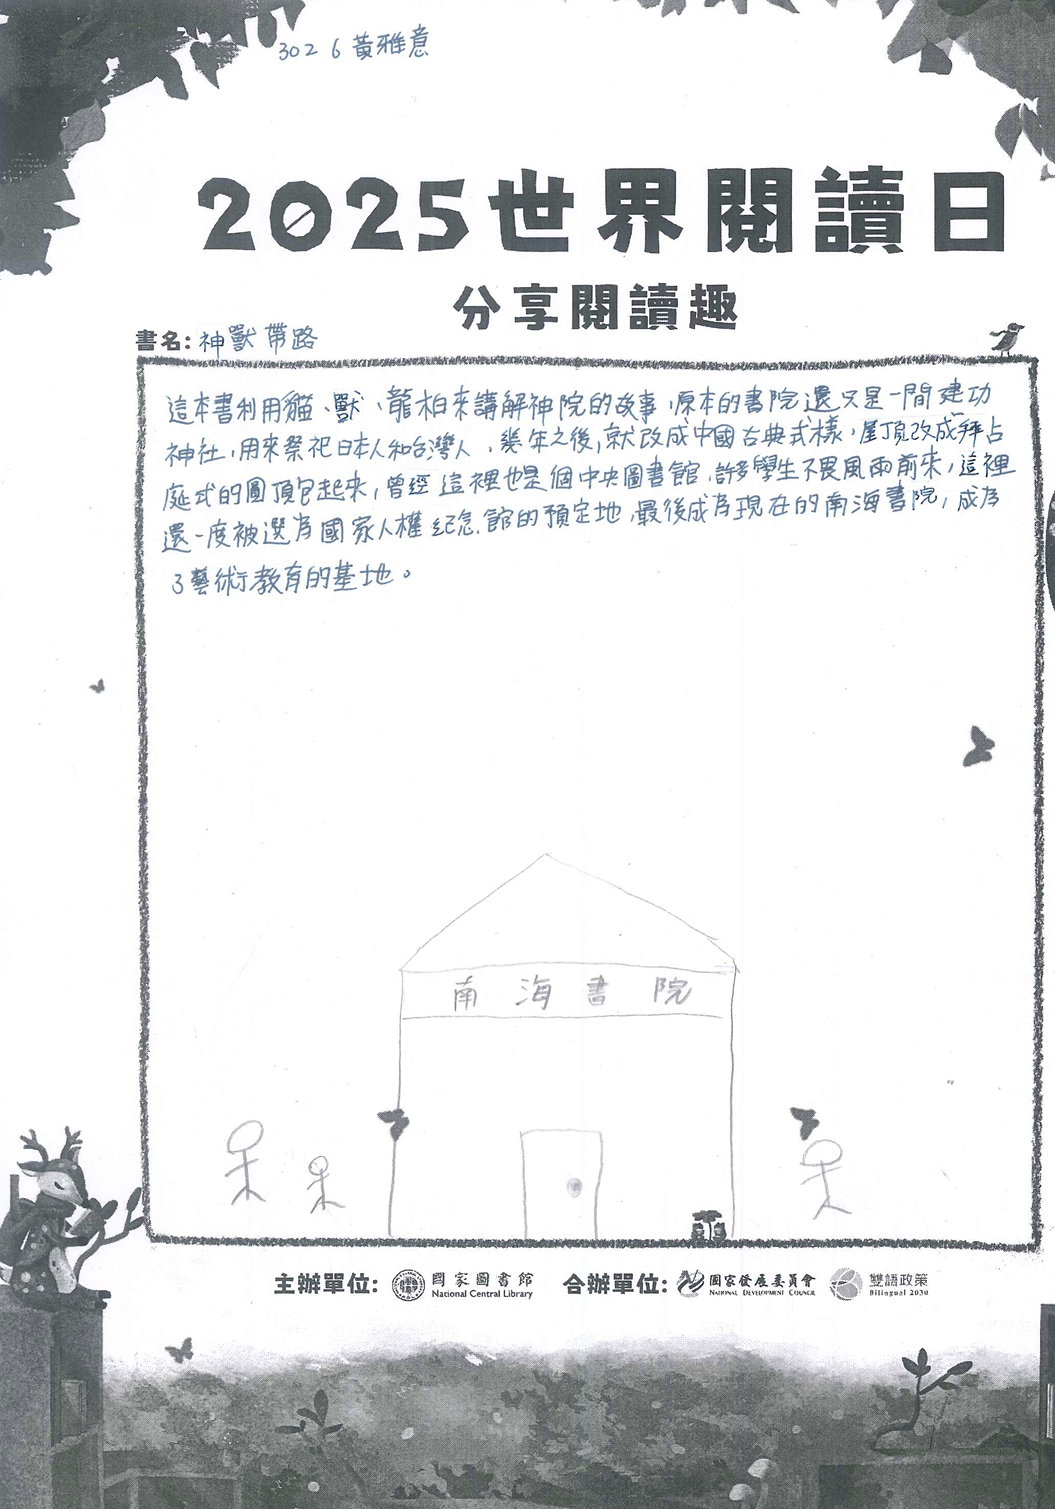 302 6 黃雅意
2025世界閱讀日
分享閱讀趣
書名: 神獸帶路
這本書利用貓、獸、龍柏來講解神院的故事,原本的書院還只是一間建功
神社,用來祭祀日本人和台灣人,幾年之後,就改成中國古典式樣,屋頂改成拜占
庭式的圓頂包起來,曾經這裡也是個中央圖書館,許多學生不畏風雨前來,這裡
還一度被選為國家人權紀念館的預定地,最後成為現在的南海書院,成為
了藝術教育的基地。
南海書院
主辦單位: 國家圖書館 National Central Library 合辦單位: 國家發展委員會 NATIONAL DEVELOPMENT COUNCIL 雙語政策 Bilingual 2030